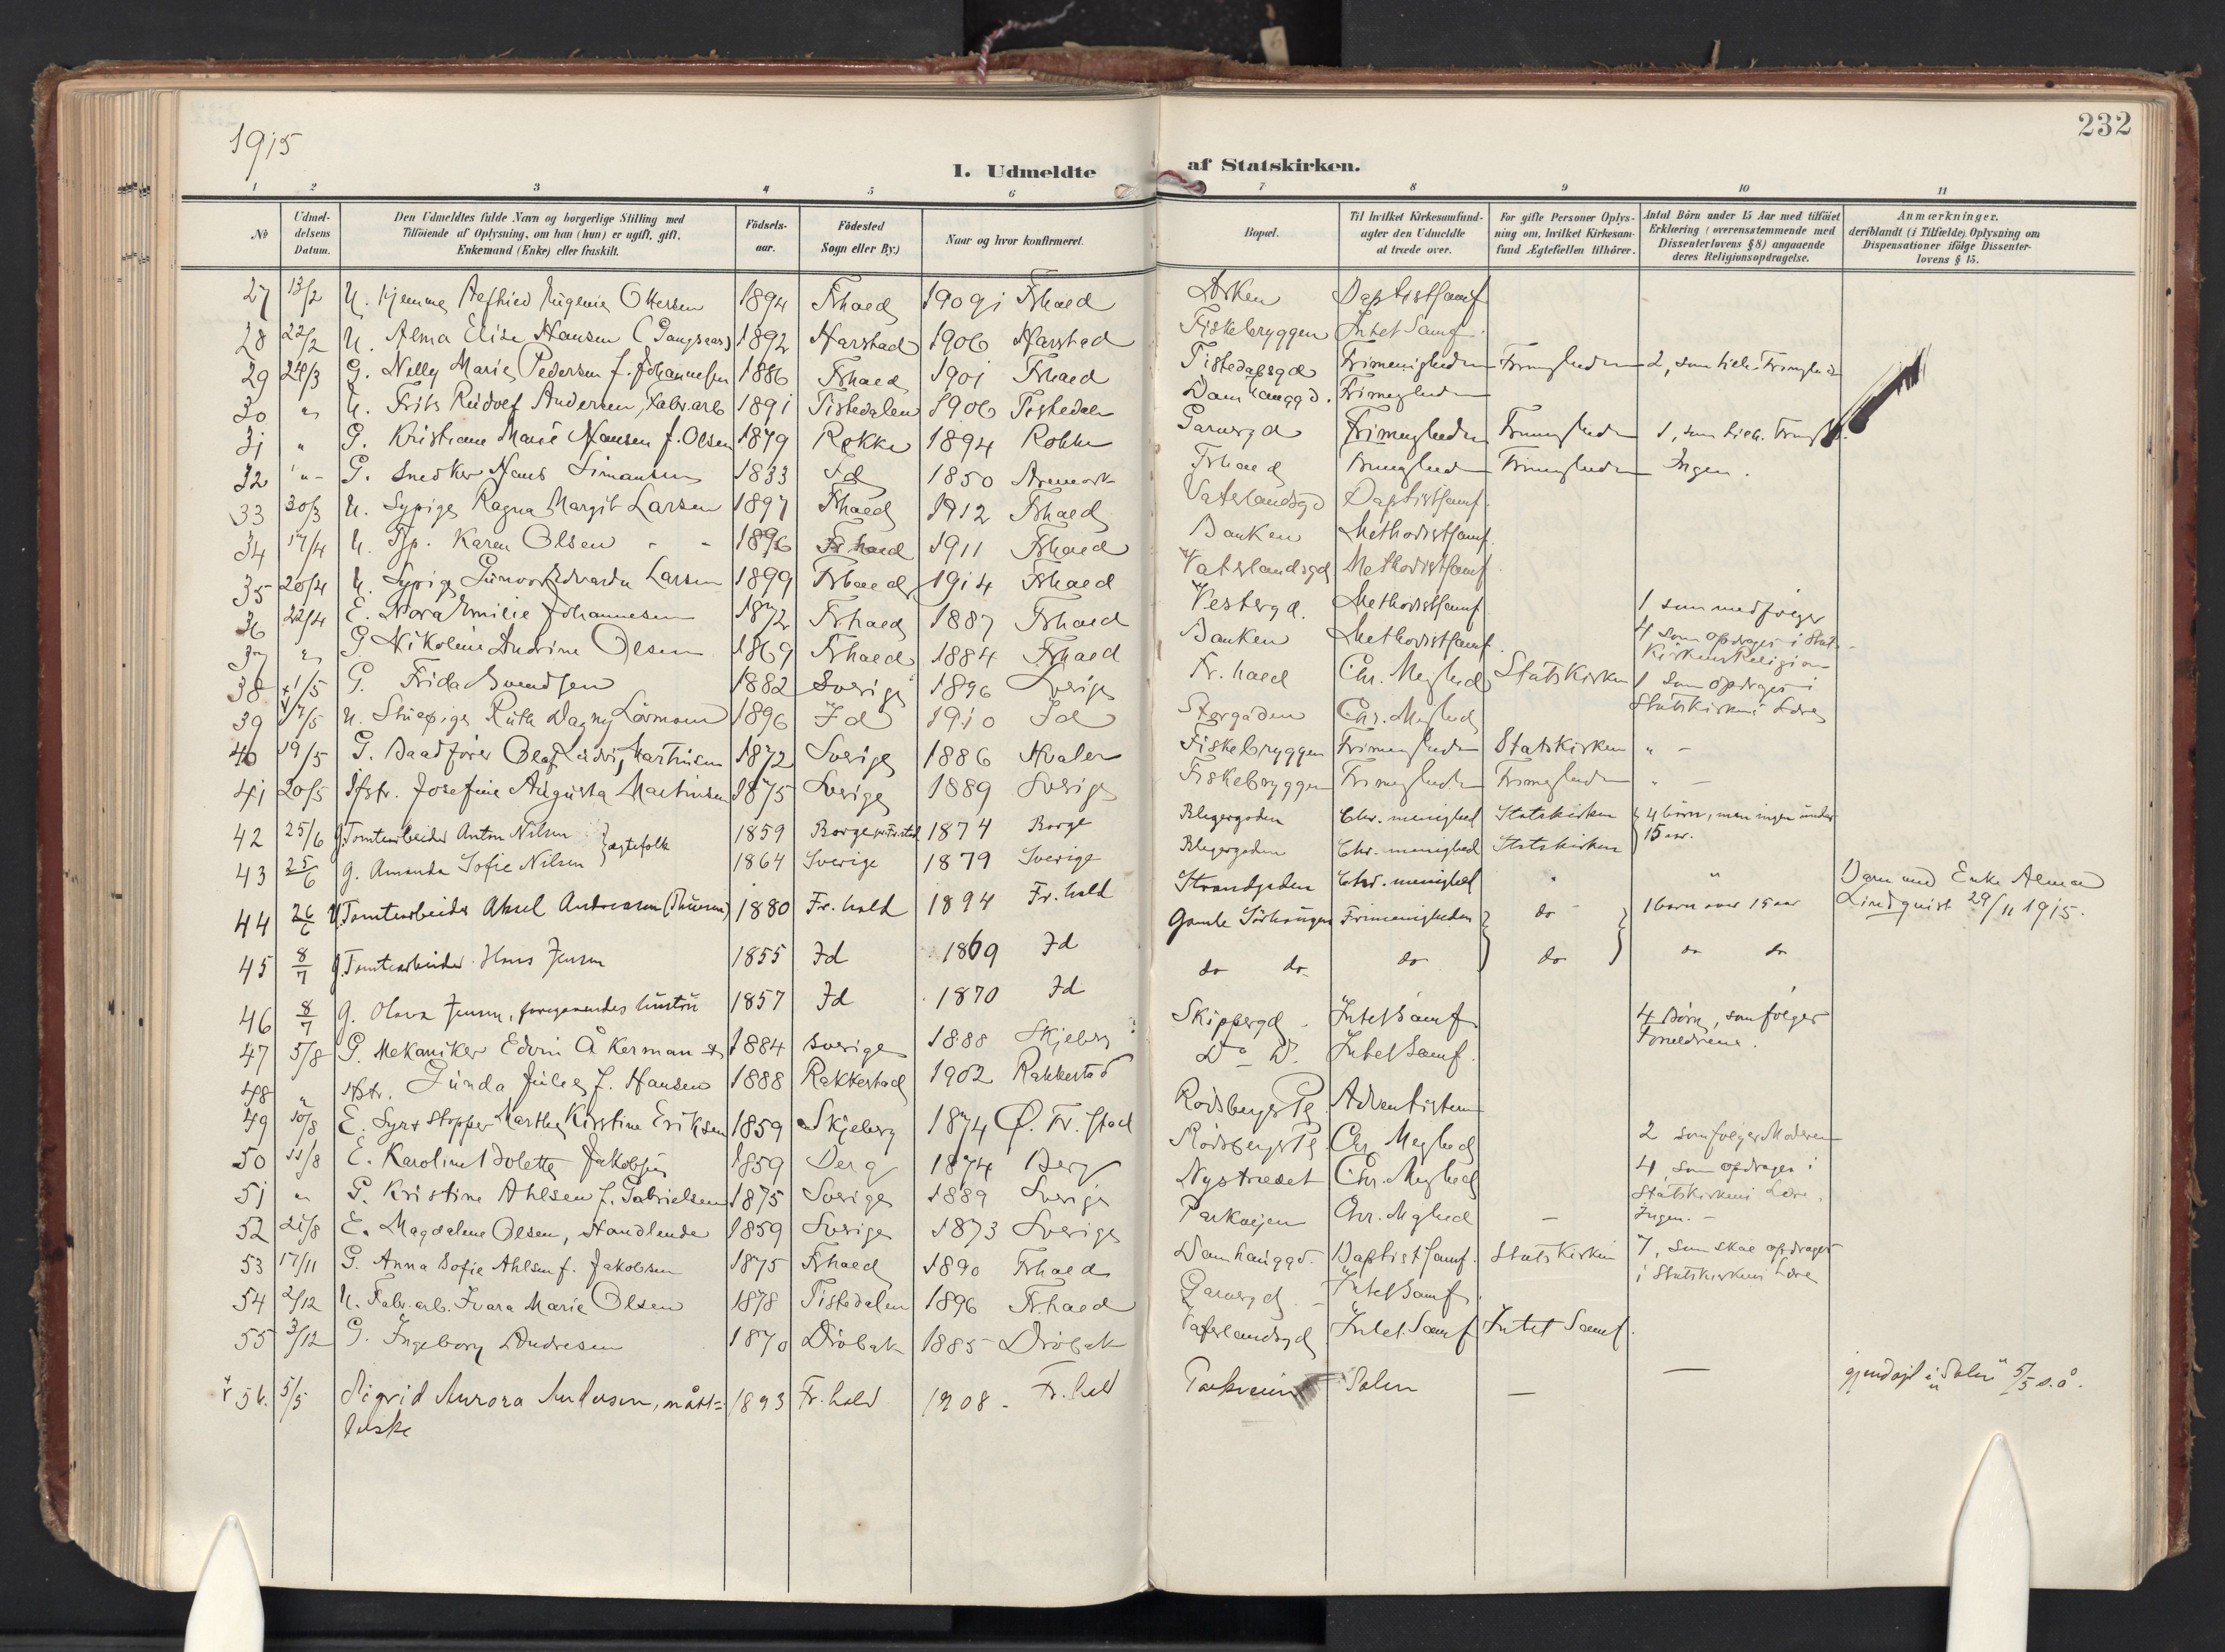 1915
232
1. Udmeldte af Statskirken.
1 2 3 4 5 6 7 8 9 10 11
No
Udmel-
delsens
Datum.
Den Udmeldtes fulde Navn og borgerlige Stilling med
Tilföiende af Oplysning, om han (hun) er ugift, gift,
Enkemand (Enke) eller fraskilt.
Födsels-
aar.
Födested
Sogn eller By.)
Naar og hvor konfirmeret.
Bopæl.
Til hvilket Kirkesamfund-
agter den Udmeldte
at træde over.
For gifte Personer Oplys-
ning om, hvilket Kirkesam-
fund Ægtefællen tilhörer.
Antal Börn under 15 Aar med tilföiet
Erklæring (overensstemmende med
Dissenterlovens § 8) angaaende
deres Religionsopdragelse.
Anmærkninger.
deriblandt (i Tilfælde) Oplysning om
Dispensationer ifölge Dissenter-
lovens § 15.
27 13/2 U. Hjemme Eugenie Ottersen 1894 Frhald 1909 Frhald Baptistsamf
28 22/2 U. Alma Elise Hansen 1892 Harstad 1906 Harstad Fiskebryggen Intet Samf.
29 24/3 G. Nelly Marie Pedersen f. Johannesen 1886 Frhald 1901 Frhald Tistedalsgd Frimenigheden Frimgheden 2, som
30 " U. Frits Rudolf Andersen, Fabr.arb 1891 Tistedalen 1906 Tistedalen Damhauggd. Frimegheden
31 " G. Kristiane Marie Hansen f. Olsen 1879 Rokke 1894 Rokke Garverigd Frimegheden Frimegheden 1, som
32 " - G. Snedker Hans Simansen 1833 Id 1850 Aremark Frhald Frimegheden Frimegheden Ingen.
33 30/3 U. Sypige Ragna Margit Larsen 1897 Frhald 1912 Frhald Vaterlandsgd Baptistsamf.
34 17/4 U. Tjp. Karen Olsen - - 1896 Fr.hald 1911 Frhald Banken Methodistsamf.
35 20/4 U. Sypige Gunvor Edvarda Larsen 1899 Frhald 1914 Frhald Vaterlandsgd Methodistsamf.
36 22/4 E. Nora Emilie Johannesen 1872 Frhald 1887 Frhald Vestergd. Methodistsamf. 1 som medfølger
37 " G. Nikoline Andrine Olsen 1869 Frhald 1884 Frhald Banken Methodistsamf. 4 som opdrages i Stats-
Kirkens Religion
38 1/5 G. Frida Svendsen 1882 Sverige 1896 Sverige Fr.hald Chr. Meghed Statskirken 1 som opdrages i
Statskirkens Lære
39 7/5 U. Stuepige Ruth Dagny 1896 Id 1910 Id Chr. Meghed
40 19/5 G. Baadfører Olaf Martinsen 1872 Sverige 1886 Hvaler Fiskebryggen Frimegheden Statskirken " -
41 20/5 Hstr. Josefine Augusta Martinsen 1875 Sverige 1889 Sverige Fiskebryggen Frimegheden Frimegheden " -
42 25/6 g. Tomtearbeider Anton Nilsen } ægtefolk 1859 Borge 1874 Borge Blegergaden Chr. menighed Statskirken } 4 børn, men ingen under
15 aar.
43 25/6 g. Amanda Sofie Nilsen 1864 Sverige 1879 Sverige Blegergaden Chr. menighed Statskirken
44 26/6 U. Tomtearbeider Aksel Andreasen 1880 Fr.hald 1894 Fr.hald Strandgaden Chr. menighed " " Barn med Enke Alma
Lindquist 29/11 1915.
45 8/7 g. Tomtearbeider Hans Jensen 1855 Id 1869 Id Gamle Sørhaugen Frimenigheden do 1 barn over 15 aar
46 8/7 g. Olava Jensen, foregaaendes hustru 1857 Id 1870 Id do do do do do do
47 5/8 G. Mekaniker Edvin Åkerman 1884 Sverige 1888 Skjeberg Skippergd - Intet Samf. 4 Børn, som følger
Forældrene.
48 " Hstr. Gunda Julie f. Hansen 1888 Rakkestad 1902 Rakkestad Do Do. Intet Samf.
49 10/8 E. Marthe Kirstine Eriksen 1859 Skjeberg 1874 Ø. Fr.stad Rødsbergs Pl Adventisterne
50 11/8 E. Karoline Bolette Jakobsen 1859 Berg 1874 Berg Rødsbergs Pl Chr. Meghed 2 som følger Moderen
51 " G. Kristine Ahlsen f. Gabrielsen 1875 Sverige 1889 Sverige Nystrædet Chr. Meghed 4, som opdrages i
Statskirkens Lære.
52 21/8 E. Magdalene Olsen, Handlende 1859 Sverige 1873 Sverige Parkveien Chr. Meghed - Ingen. -
53 17/11 G. Anna Sofie Ahlsen f. Jakobsen 1875 Frhald 1890 Frhald Damhauggd. Baptistsamf. Statskirken 7, som skal opdrages
i Statskirkens Lære
54 2/12 U. Fabr.arb. Ivara Marie Olsen 1878 Tistedalen 1896 Fr.hald Garverigd. - Intet Samf.
55 3/12 G. Ingeborg Andresen 1870 Drøbak 1885 Drøbak Vaterlandsgd Intet Samf Intet Samf.
56. 5/5 Sigrid Aurora Andersen, 1893 Fr.hald 1908 - Fr.hald Parkveien Salen — — gjendøpt i "Salen" 5/5 s.å.